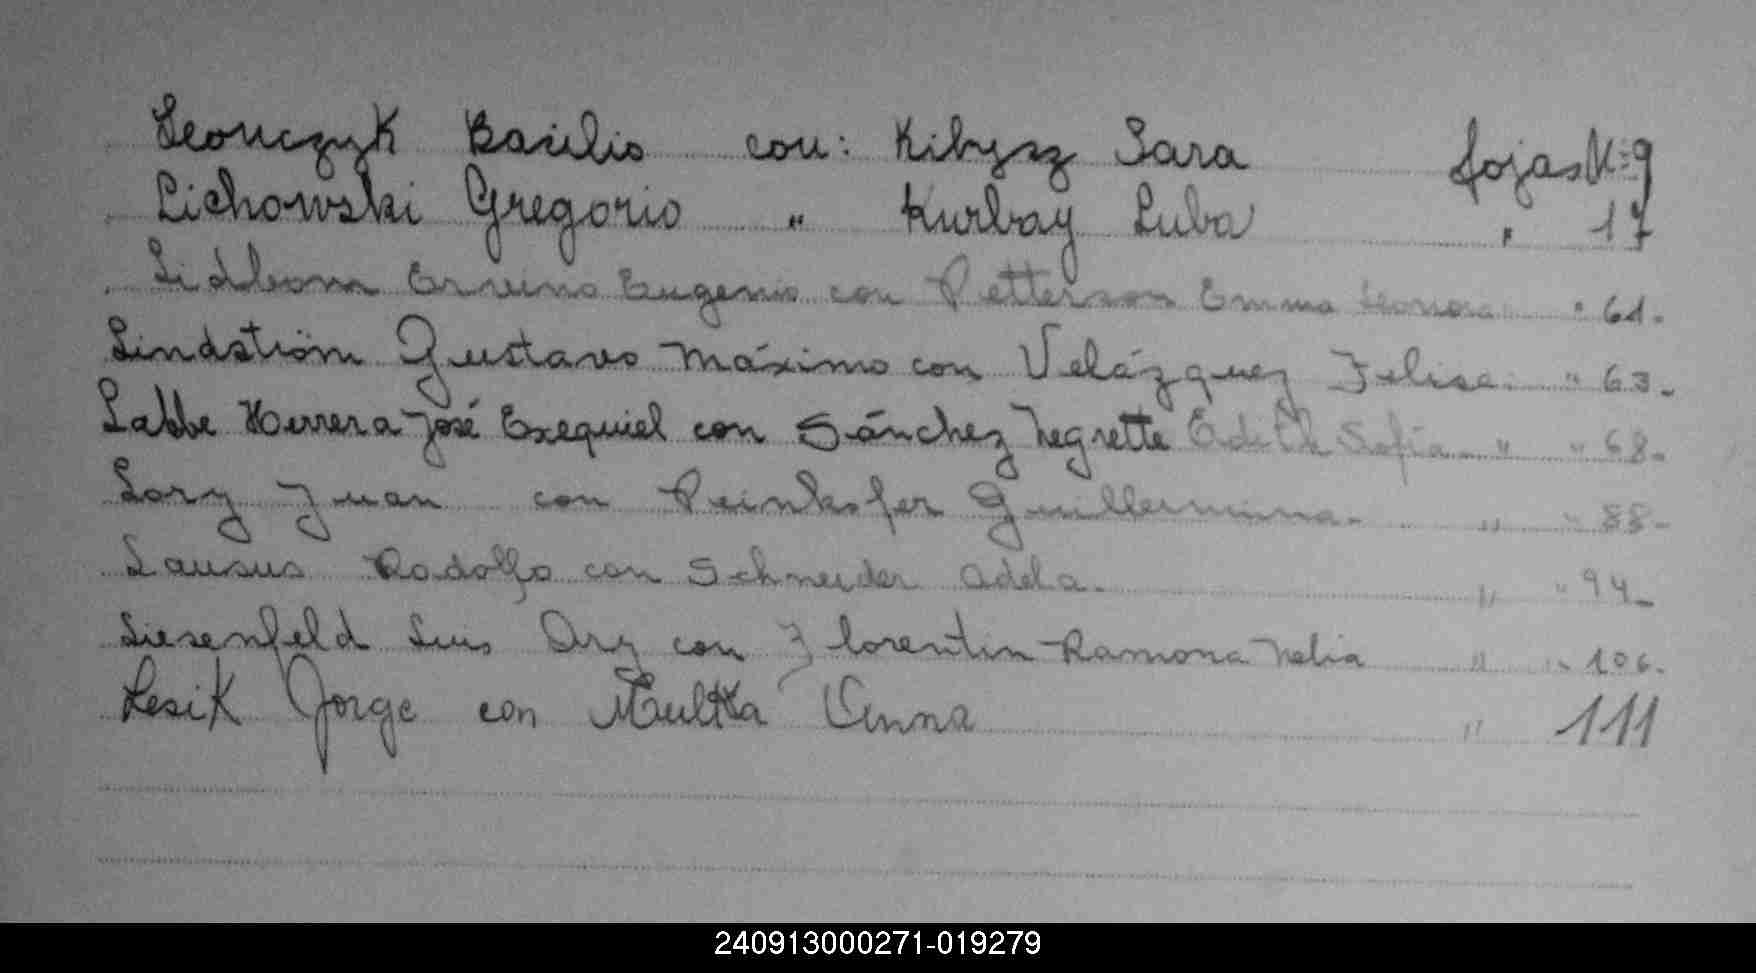 Leonczyk Basilio con: Kibysz Sara fojas Nº 9
Lichowski Gregorio " Kurbay Luba " 17
Lidbom Ervino Eugenio con Petterson Emma Leonora " 61.
Lindström Gustavo Máximo con Velázquez Felisa. " 63-
Labbe Herrera José Exequiel con Sánchez Negrette Edith Sofía " " 68-
Lory Juan con Peinkofer Guillermina. " " 88-
Lausus Rodolfo con Schneider Adela. " " 94-
Liesenfeld Luis Ory con Florentin Ramona Nelia " " 106.
Lesik Jorge con Multka Anna " 111
240913000271-019279